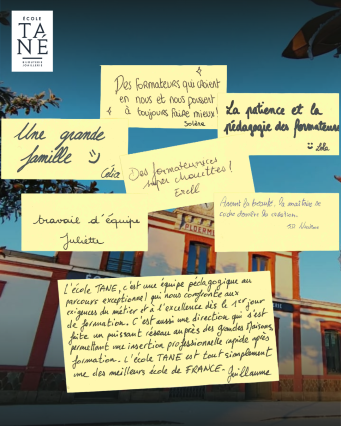 ÉCOLE
TANÉ
BIJOUTERIE
JOAILLERIE
Des formateurs qui croient
en nous et nous poussent
à toujours faire mieux!
Solène
La patience et la
pédagogie des formateurs
Lola
Une grande
famille
Des formateurices
super chouettes!
Erell
travail d'équipe
Juliette
Avant la beauté, la maîtrise de
cette dernière
PLOERM
L'école TANE, c'est une équipe pédagogique au
parcours exceptionnel qui nous confronte aux
exigences du métier et à l'excellence dès le 1er jour
de formation. C'est aussi une direction qui s'est
faite un puissant réseau auprès des grandes Maisons,
permettant une insertion professionnelle rapide après
formation. L'école TANE est tout simplement
une des meilleurs école de FRANCE - Guillaume